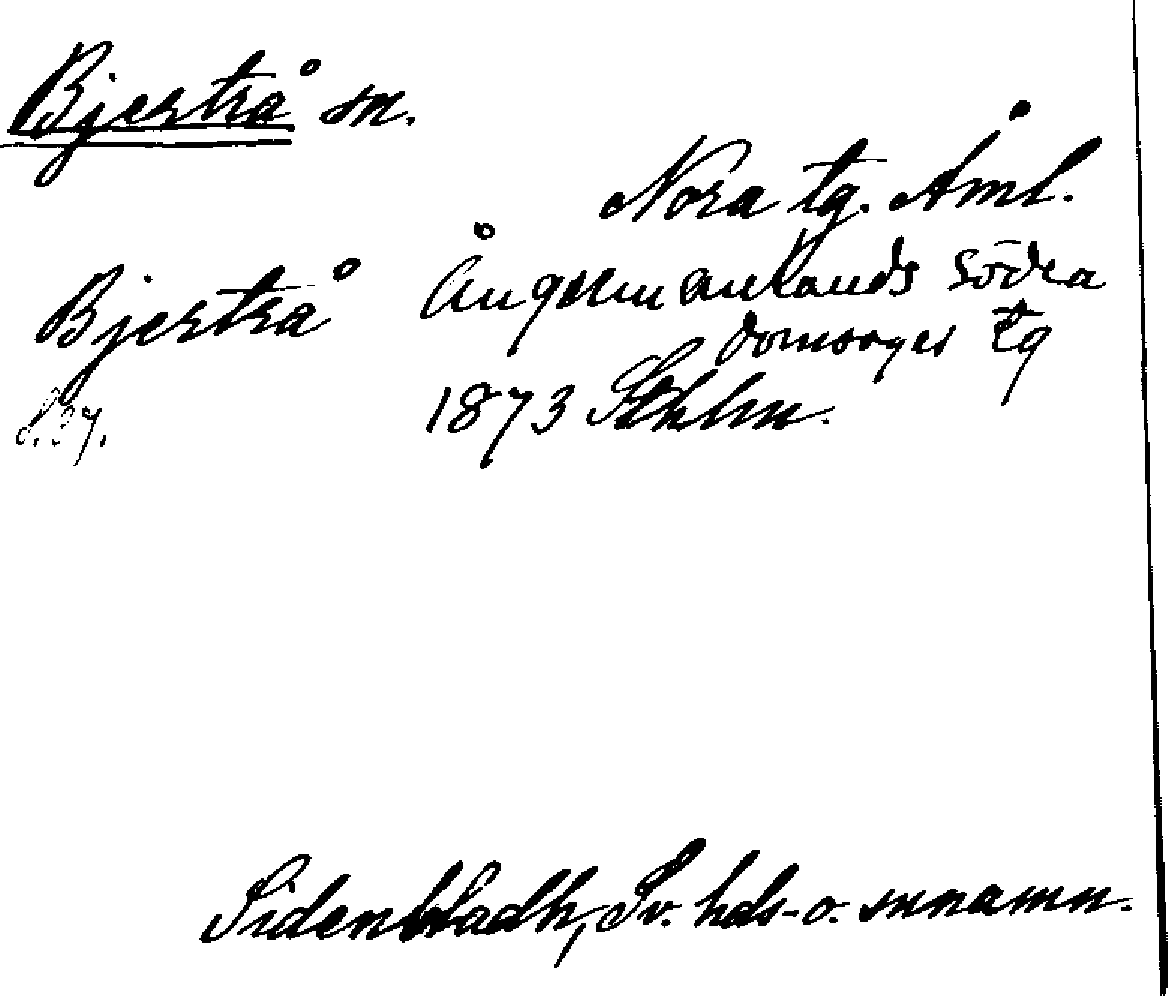 Bjertrå sn.
Nora tg. Åml.
Bjertrå Ångermanlands södra
domsagas tg
s. 37. 1873 Sthlm.
Sidenbladh, Sv. hds- o. snnamn.